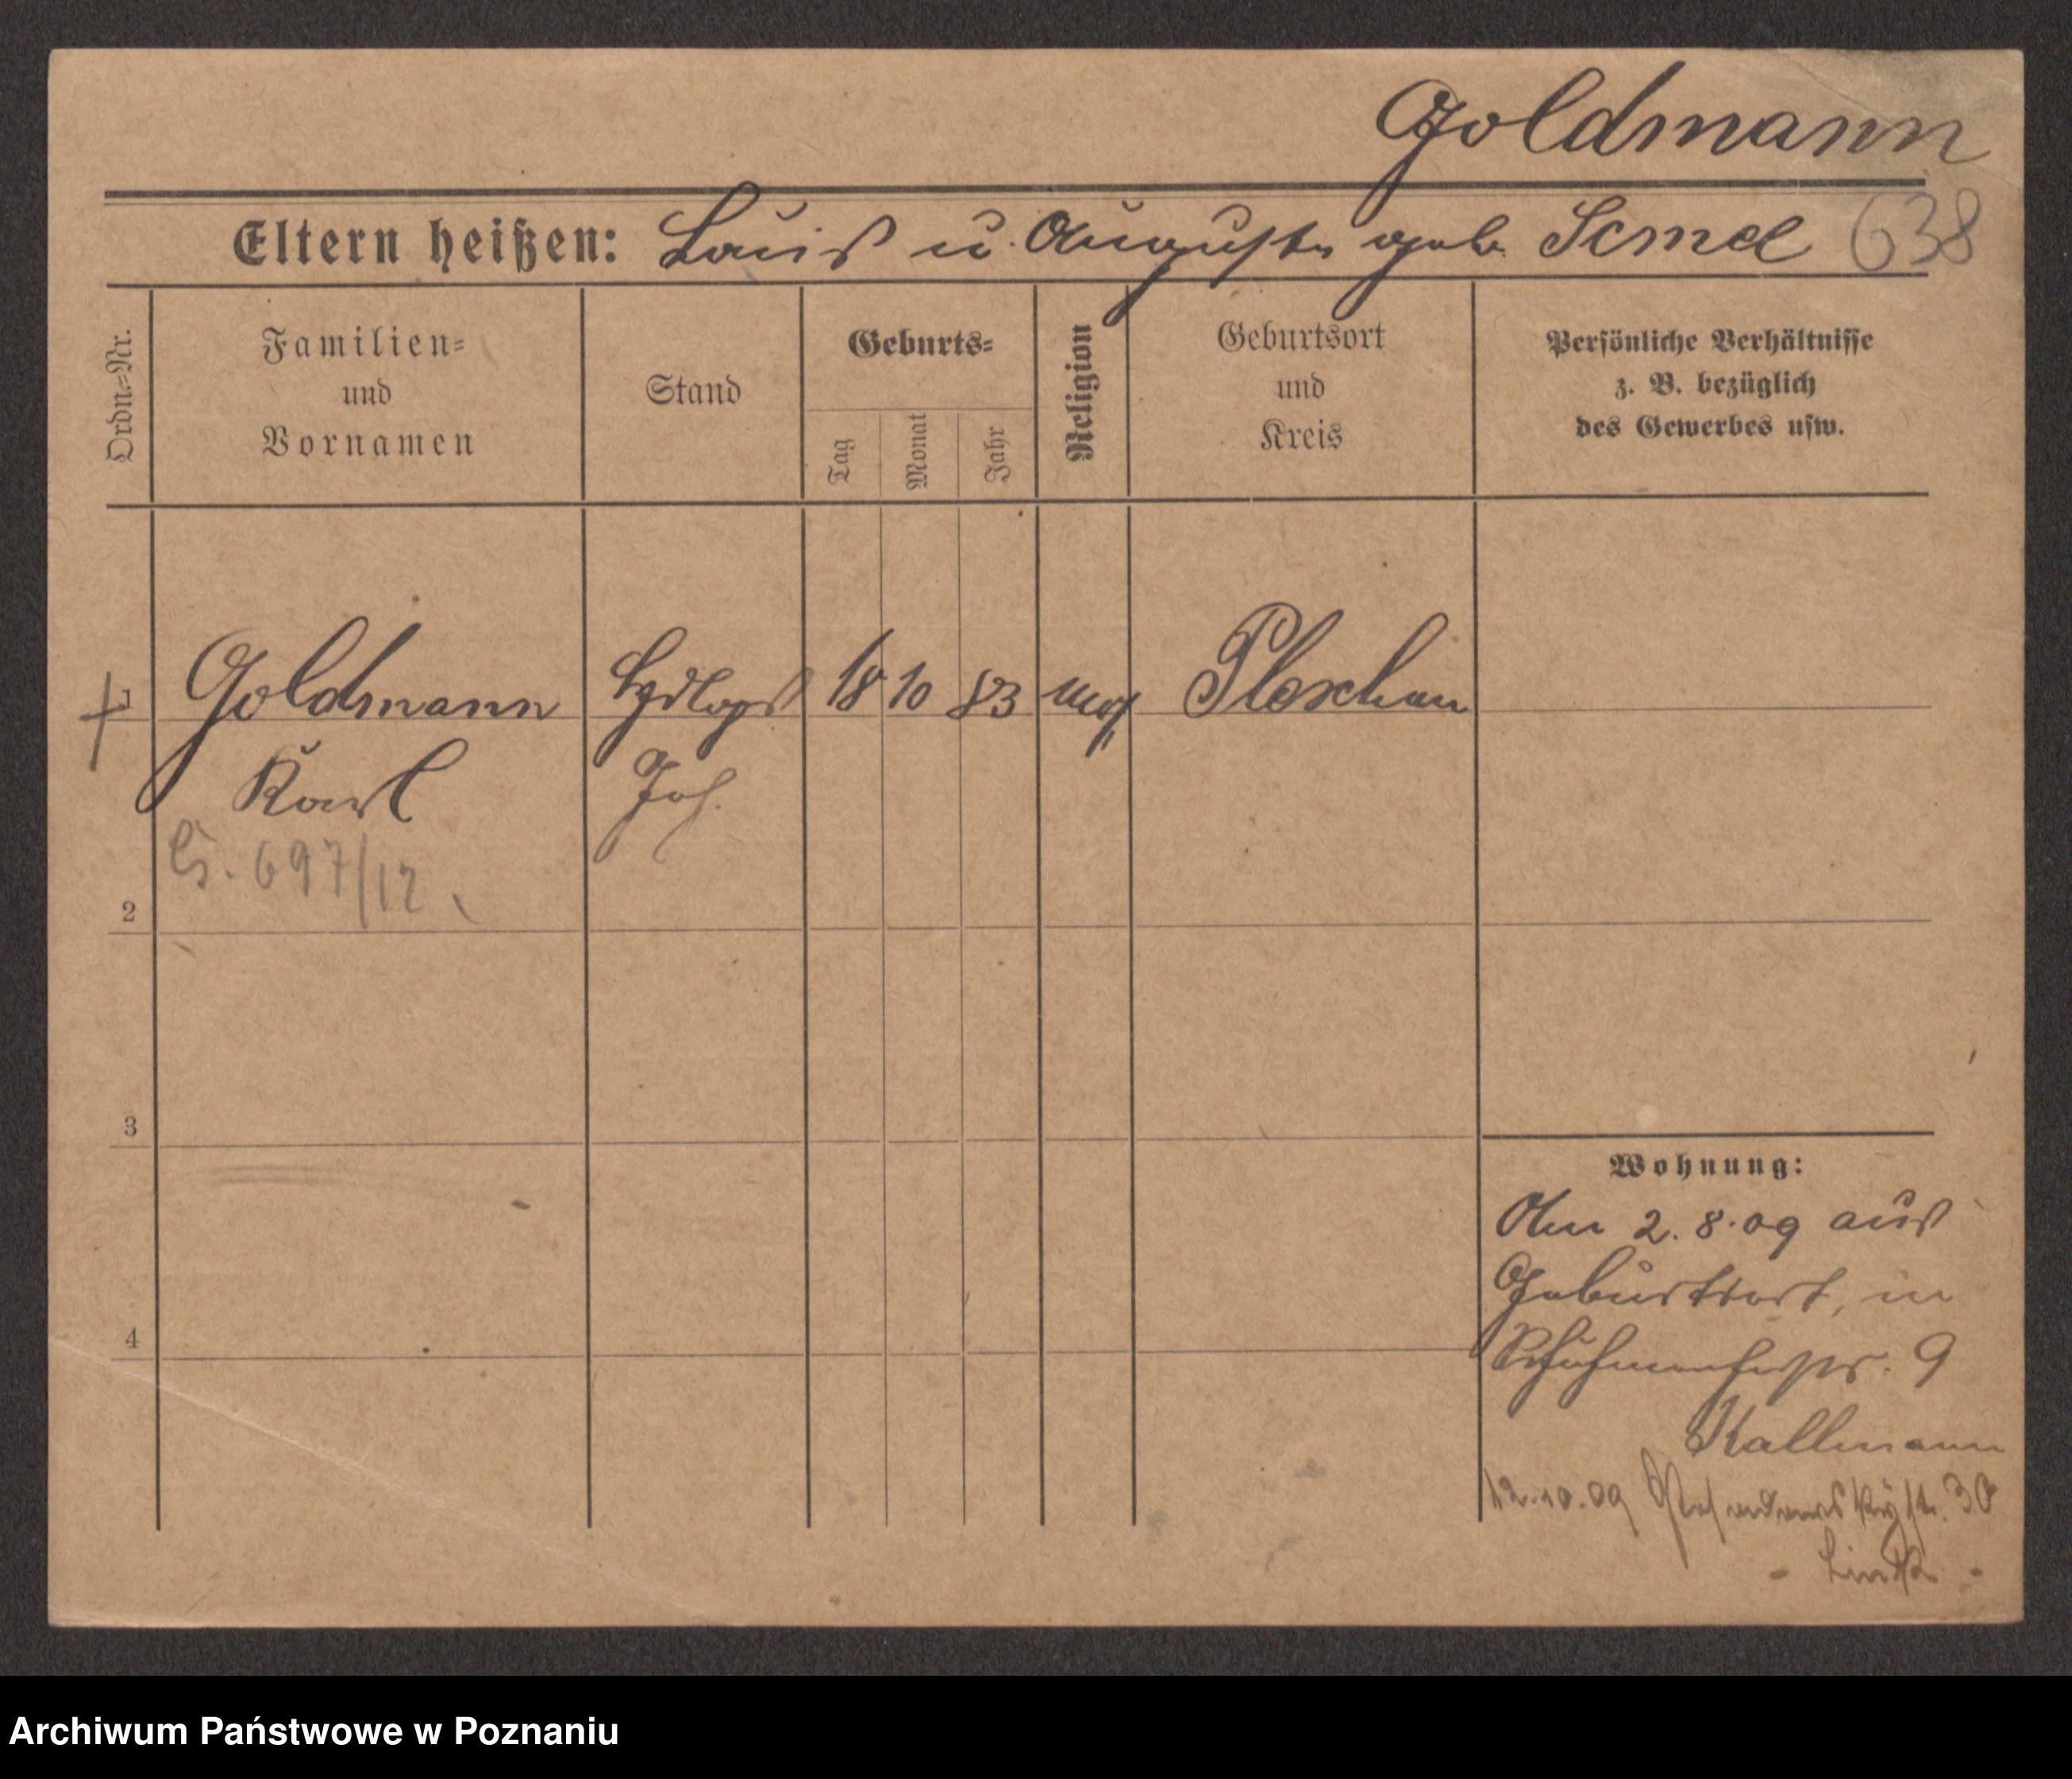 Goldmann
Eltern heißen: Louis u. Auguste geb. Semel 638
Ordn.=Nr.
Familien=
und
Vornamen
Stand
Geburts=
Tag
Monat
Jahr
Religion
Geburtsort
und
Kreis
Persönliche Verhältnisse
z. B. bezüglich
des Gewerbes usw.
1 Goldmann 18 10 83 mos. Pleschen
Karl
G. 697/12
2
3
4
Wohnung:
Am 2.8.09 aus
Geburtsort, in
Schuhmacherstr. 9
Kallmann
12.10.09
Archiwum Państwowe w Poznaniu